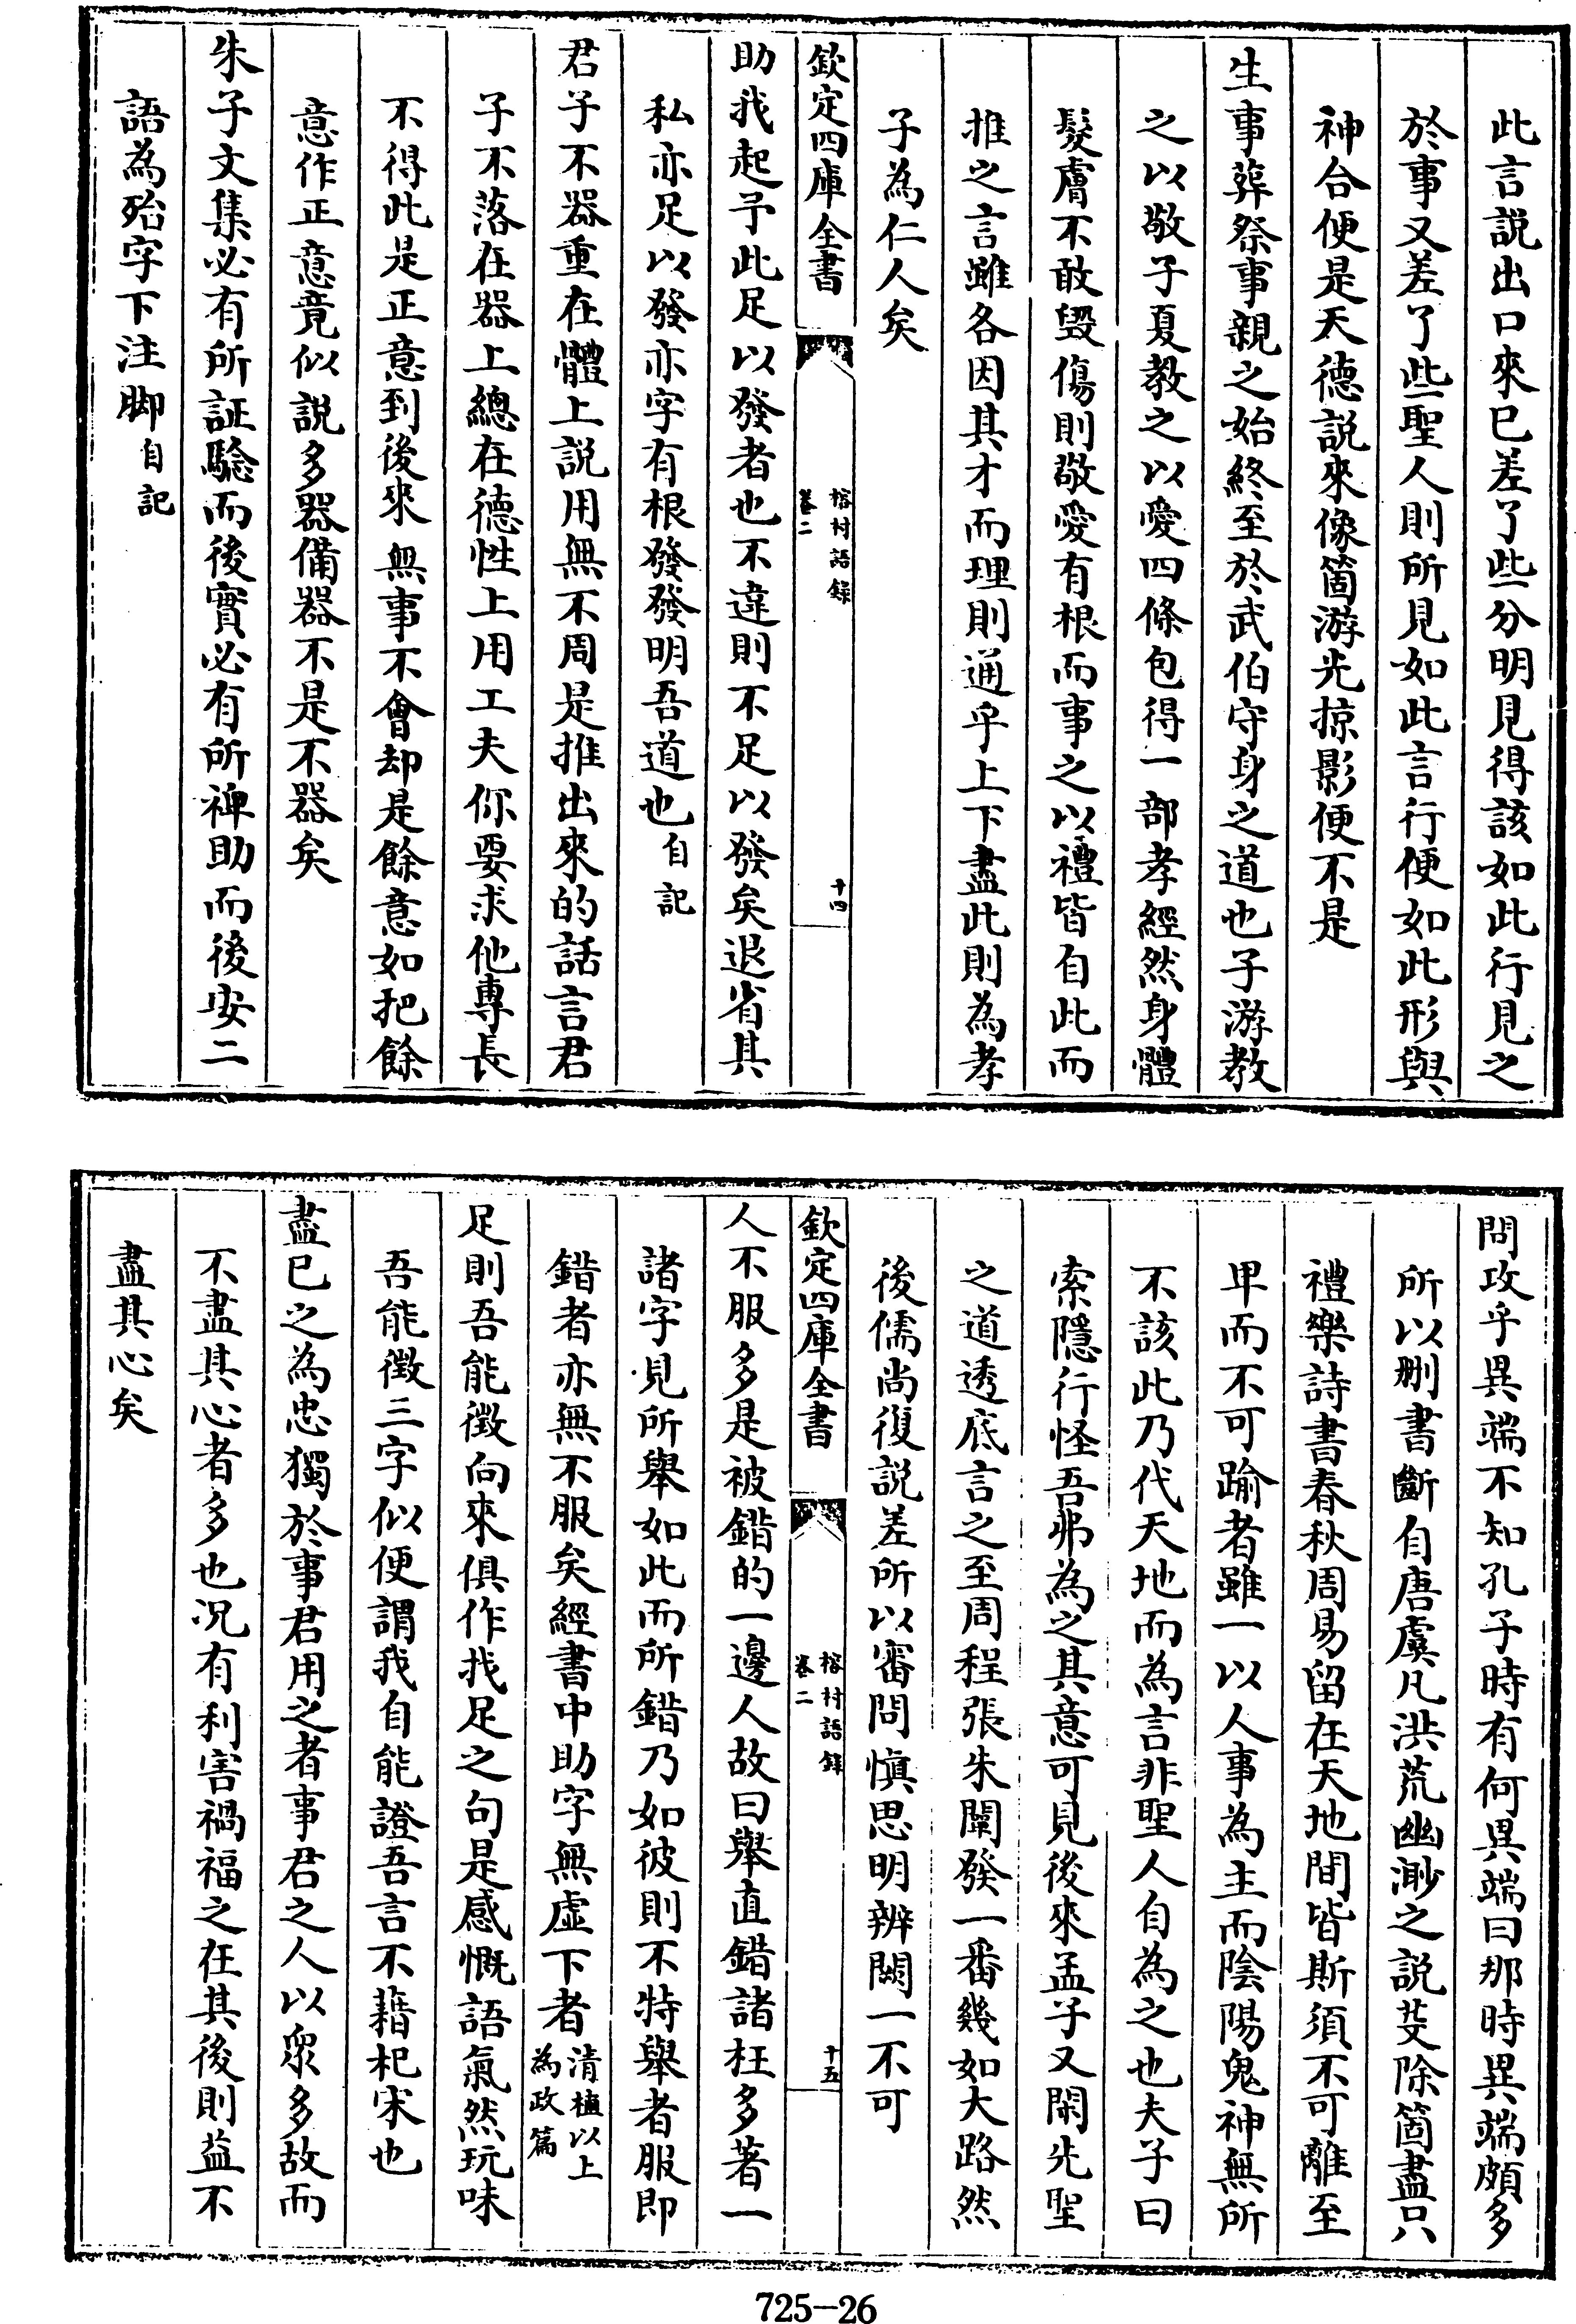 此言説出口來已差了些分明見得該如此行見之
於事又差了些聖人則所見如此言行便如此形與
神合便是天德説來像箇游光掠影便不是
生事葬祭事親之始終至於武伯守身之道也子游教
之以敬子夏教之以愛四條包得一部孝經然身體
髮膚不敢毀傷則敬愛有根而事之以禮皆自此而
推之言雖各因其才而理則通乎上下盡此則為孝
子為仁人矣
欽定四庫全書
榕村語錄
卷二
十四
助我起予此足以發者也不違則不足以發矣退省其
私亦足以發亦字有根發發明吾道也自記
君子不器重在體上説用無不周是推出來的話言君
子不落在器上總在德性上用工夫你要求他專長
不得此是正意到後來無事不會却是餘意如把餘
意作正意竟似説多器備器不是不器矣
朱子文集必有所証驗而後實必有所裨助而後安二
語為殆字下注脚自記
問攻乎異端不知孔子時有何異端曰那時異端頗多
所以删書斷自唐虞凡洪荒幽渺之説芟除箇盡只
禮樂詩書春秋周易留在天地間皆斯須不可離至
卑而不可踰者雖一以人事為主而陰陽鬼神無所
不該此乃代天地而為言非聖人自為之也夫子曰
索隱行怪吾弗為之其意可見後來孟子又閑先聖
之道透底言之至周程張朱闡發一番幾如大路然
後儒尚復説差所以審問慎思明辨闕一不可
欽定四庫全書
榕村語錄
卷二
十五
人不服多是被錯的一邊人故曰舉直錯諸枉多著一
諸字見所舉如此而所錯乃如彼則不特舉者服即
錯者亦無不服矣經書中助字無虛下者清植以上
為政篇
足則吾能徵向來俱作找足之句是感慨語氣然玩味
吾能徴三字似便謂我自能證吾言不藉杞宋也
盡已之為忠獨於事君用之者事君之人以衆多故而
不盡其心者多也况有利害禍福之在其後則益不
盡其心矣
725-26